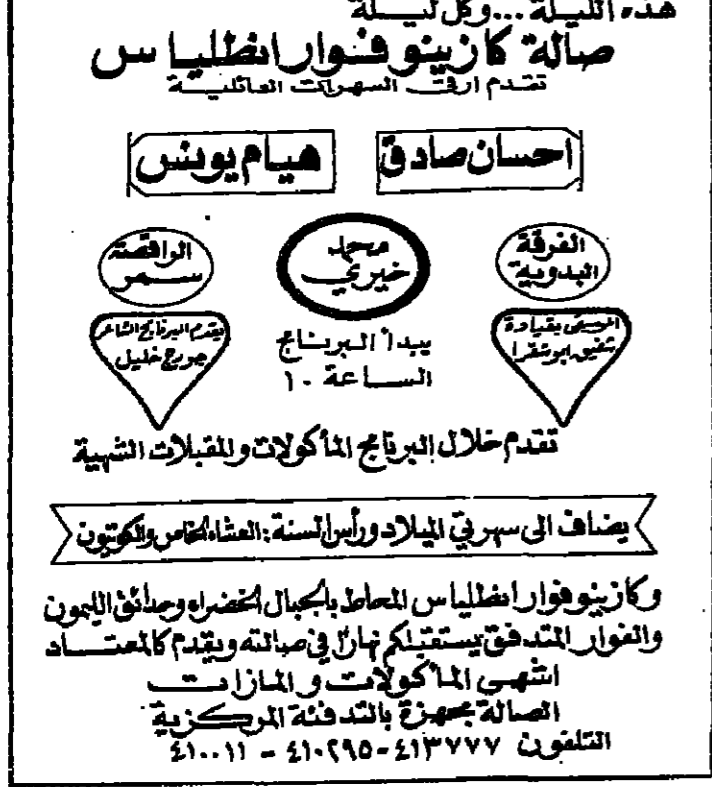 هذه الليلة ... وكل ليلة
صالة كازينو فوار انطلياس
تقدم ارقى السهرات العائلية
احسان صادق
هيام يونس
الفرقة
البدوية
محمد
خيري
الراقصة
سمر
الموسيقى بقيادة
شفيق ابو شقرا
يبدأ البرنامج
الساعة ١٠
يقدم البرنامج الشاعر
جورج خليل
تقدم خلال البرنامج المأكولات والمقبلات الشهية
يضاف الى سهرتي الميلاد ورأس السنة: العشاء الخاص والكوتيون
وكازينو فوار انطلياس المحاط بالجبال الخضراء وحدائق الليمون
والفوار المتدفق يستقبلكم نهارا في صالته ويقدم كالمعتاد
اشهى المأكولات والمازات
الصالة مجهزة بالتدفئة المركزية
التلفون ٤١٣٧٧٧ - ٤١٠٢٩٥ - ٤١٠٠١١